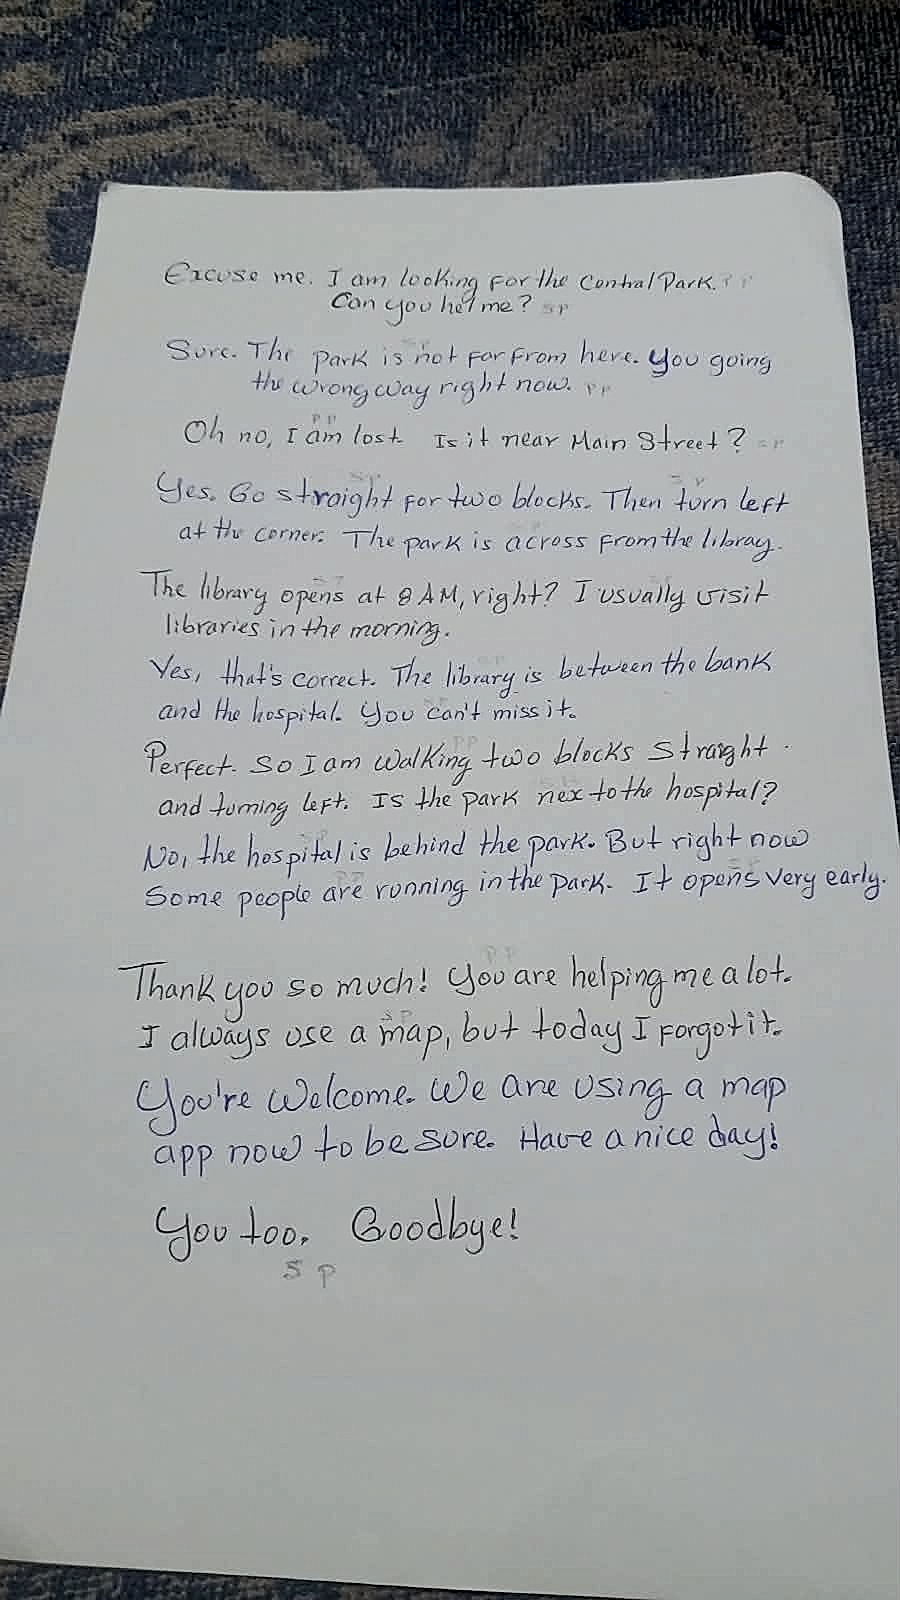 Excuse me. I am looking for the Central Park. PP
Can you hel me? SP
Sure. The park is not far from here. You going
the wrong way right now. PP
PP
Oh no, I am lost. Is it near Main Street? SP
SP SP
Yes. Go straight for two blocks. Then turn left
at the corner. The park is across from the libray.
The library opens at 8 AM, right? I usually visit
libraries in the morning.
Yes, that's correct. The library is between the bank
and the hospital. You can't miss it.
PP
Perfect. So I am walking two blocks straight
and turning left. Is the park nex to the hospital?
SP
No, the hospital is behind the park. But right now
PP SP
Some people are running in the park. It opens very early.
PP
Thank you so much! You are helping me a lot.
SP
I always use a map, but today I forgot it.
You're welcome. We are using a map
app now to be sure. Have a nice day!
You too. Goodbye!
SP